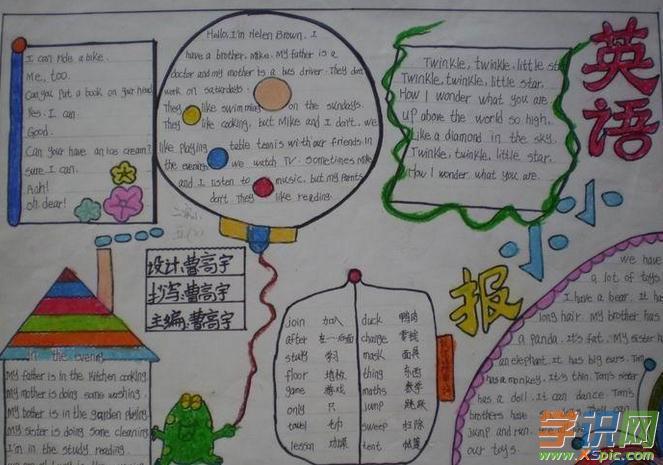 I can ride a bike.
Me, too.
Can you put a book on your head
Yes. I can.
Good.
Can your have an ice cream?
sure. I can.
Aah!
oh. dear!
Hello, I'm Helen Brown. I
have a brother, Mike. My father is a
doctor and my mother is a bus driver. They don't
work on saturdays.
They like swimming on the sundays.
They like cooking, but Mike and I don't. we
like playing table tennis with our friends. In
the evening we watch TV. Sometimes Mike
and I listen to music, but my parents
don't. They like reading.
Twinkle, twinkle, little star
Twinkle, twinkle, little star.
How I wonder what you are
up above the world so high,
Like a diamond in the sky.
Twinkle, twinkle, little star.
How I wonder what you are.
英语
小小
报
设计:曹高宇
抄写:曹高宇
主编:曹高宇
In the evening
My father is in the kitchen cooking
My mother is doing some washing.
My brother is in the garden playing
My sister is doing some cleaning
I'm in the study reading.
join 加入
after 在…后面
study 学习
floor 地板
game 游戏
only 只
towel 毛巾
lesson 功课
duck 鸭肉
change 零钱
mask 面具
thing 东西
maths 数学
jump 跳跃
sweep 扫除
tent 帐篷
we have
a lot of toys.
I have a bear. It has
long hair. My brother has
a panda. It's fat. My sister has
an elephant. It has big ears. Tom
has a monkey. It's thin. Tom's sister
has a doll. It can dance. Tom's
brothers have
jump and run. we
our toys.
学识网
www.xspic.com